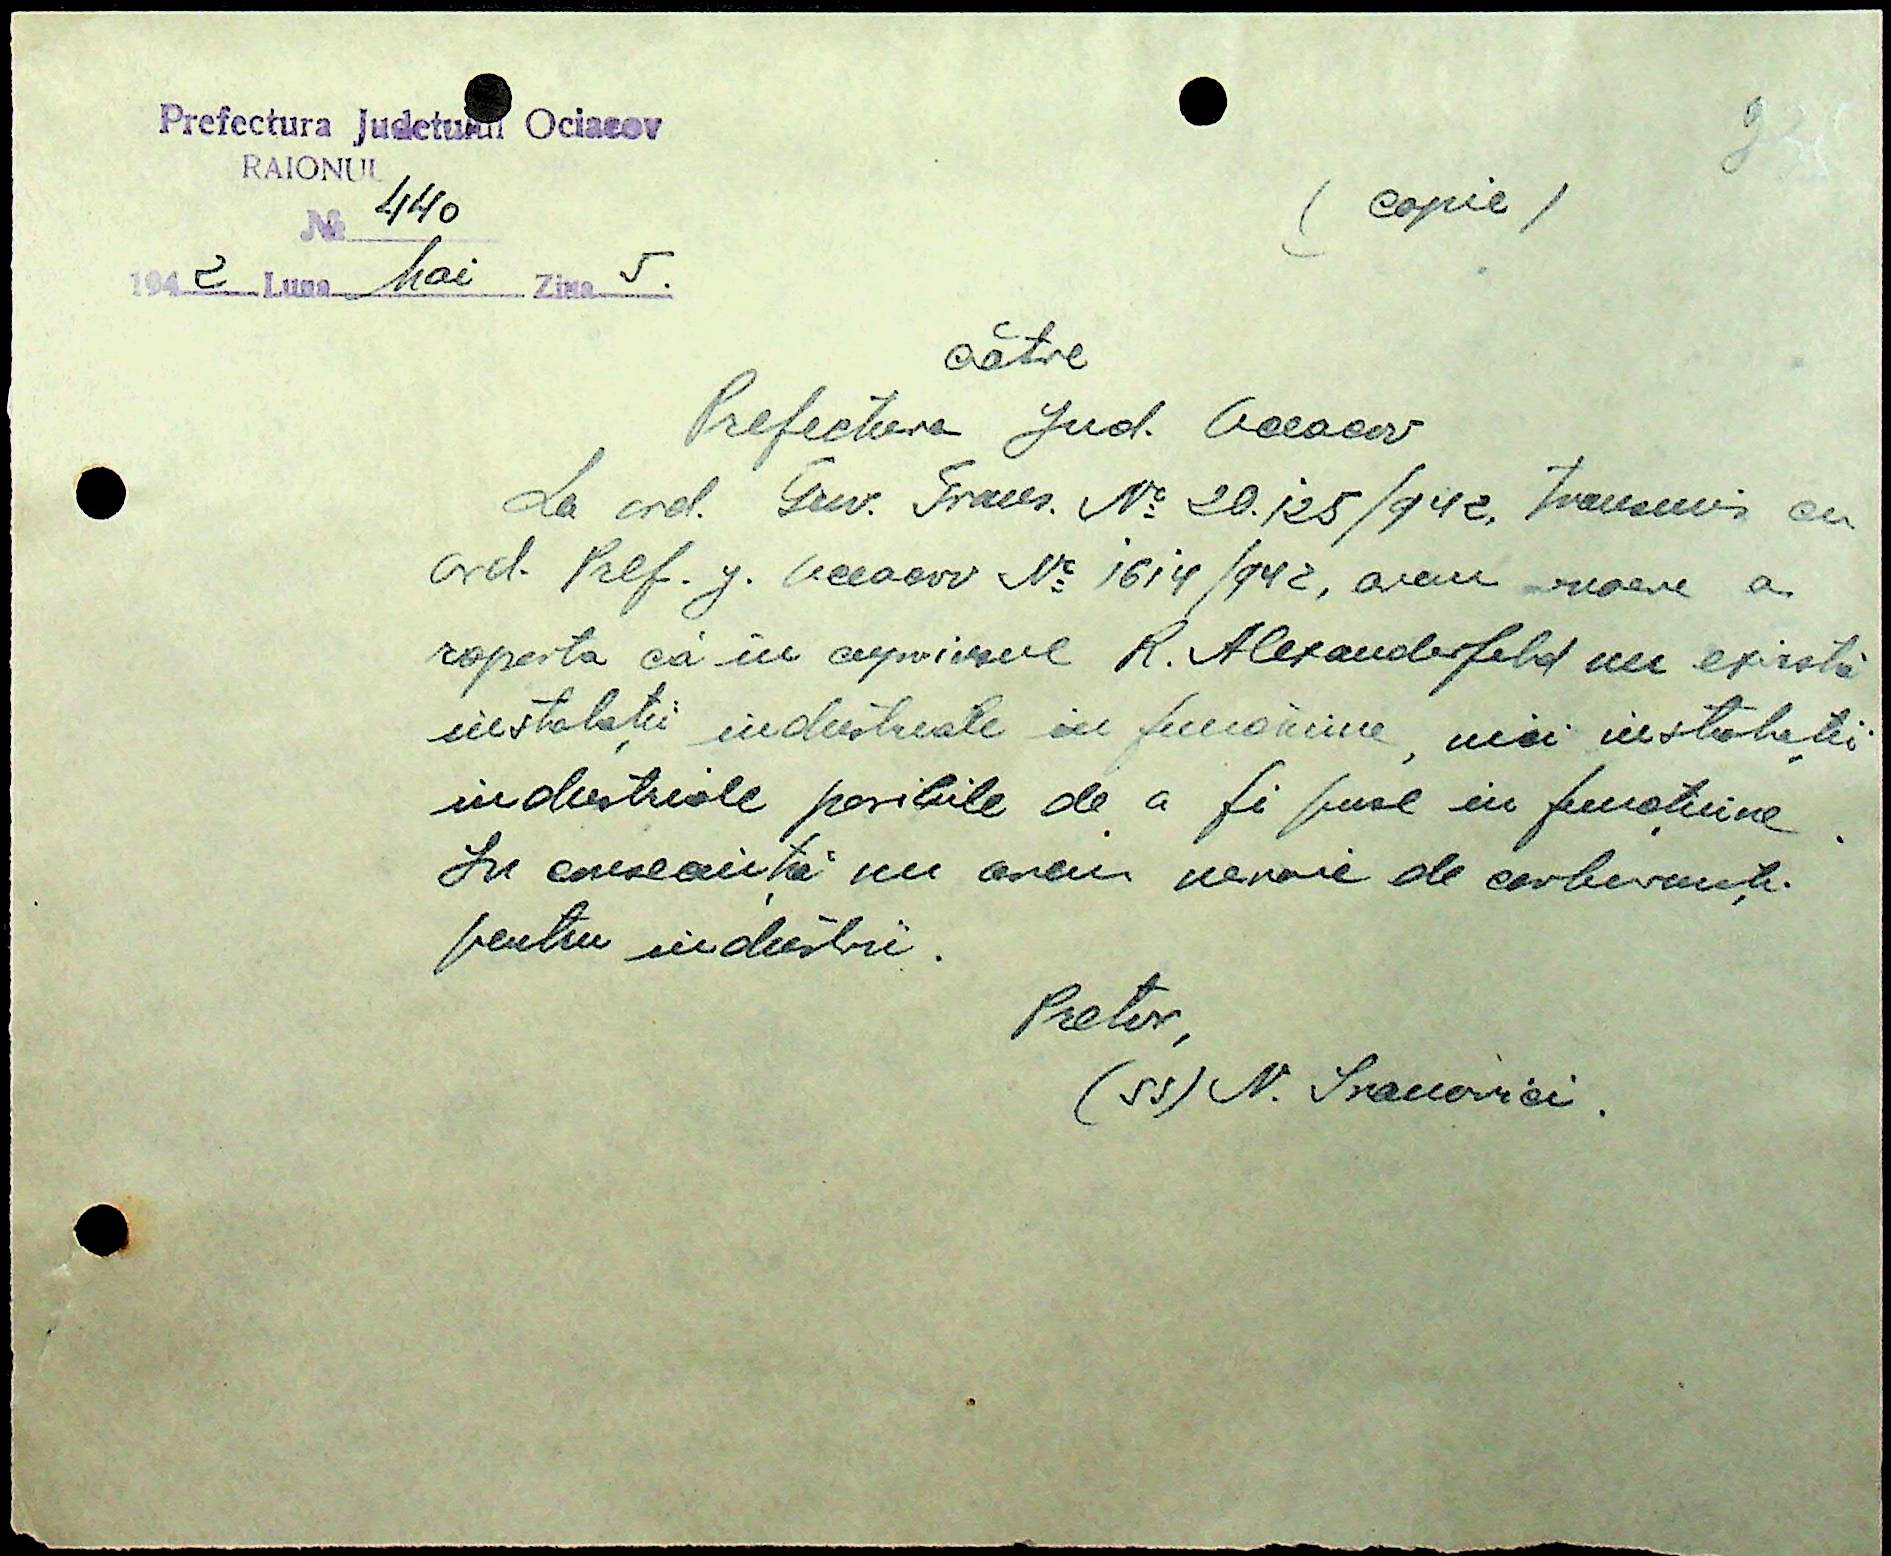 Prefectura Județului Ociacov
RAIONUL
№ 440
1942 Luna Mai Ziua 5.
( copie )
către
Prefectura Jud. Oceacov
La ord. Guv. Trans. Nº 20.125/942, transmis cu
ord. Pref. j. Oceacov Nº 1614/942, avem onoare a
raporta că în cuprinsul R. Alexanderfeld nu există
instalații industriale in funcțiune, nici instalații
industriale posibile de a fi puse in funcțiune.
In consecință nu avem nevoie de carburanți
pentru industrii.
Pretor,
(ss) N. Ivanovici.